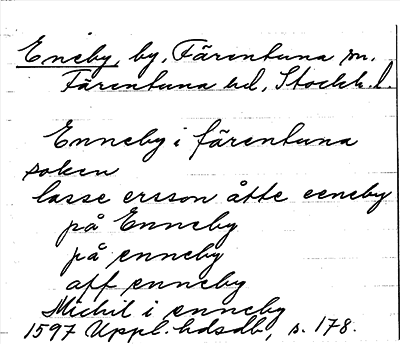 Eneby, by, Färentuna sn.
Färentuna hd, Stockh. l.
Enneby i färentuna
soken
lasse ersson åtte eeneby
på Enneby
på enneby
aff enneby
Michil i enneby
1597 Uppl. hdsdb, s. 178.